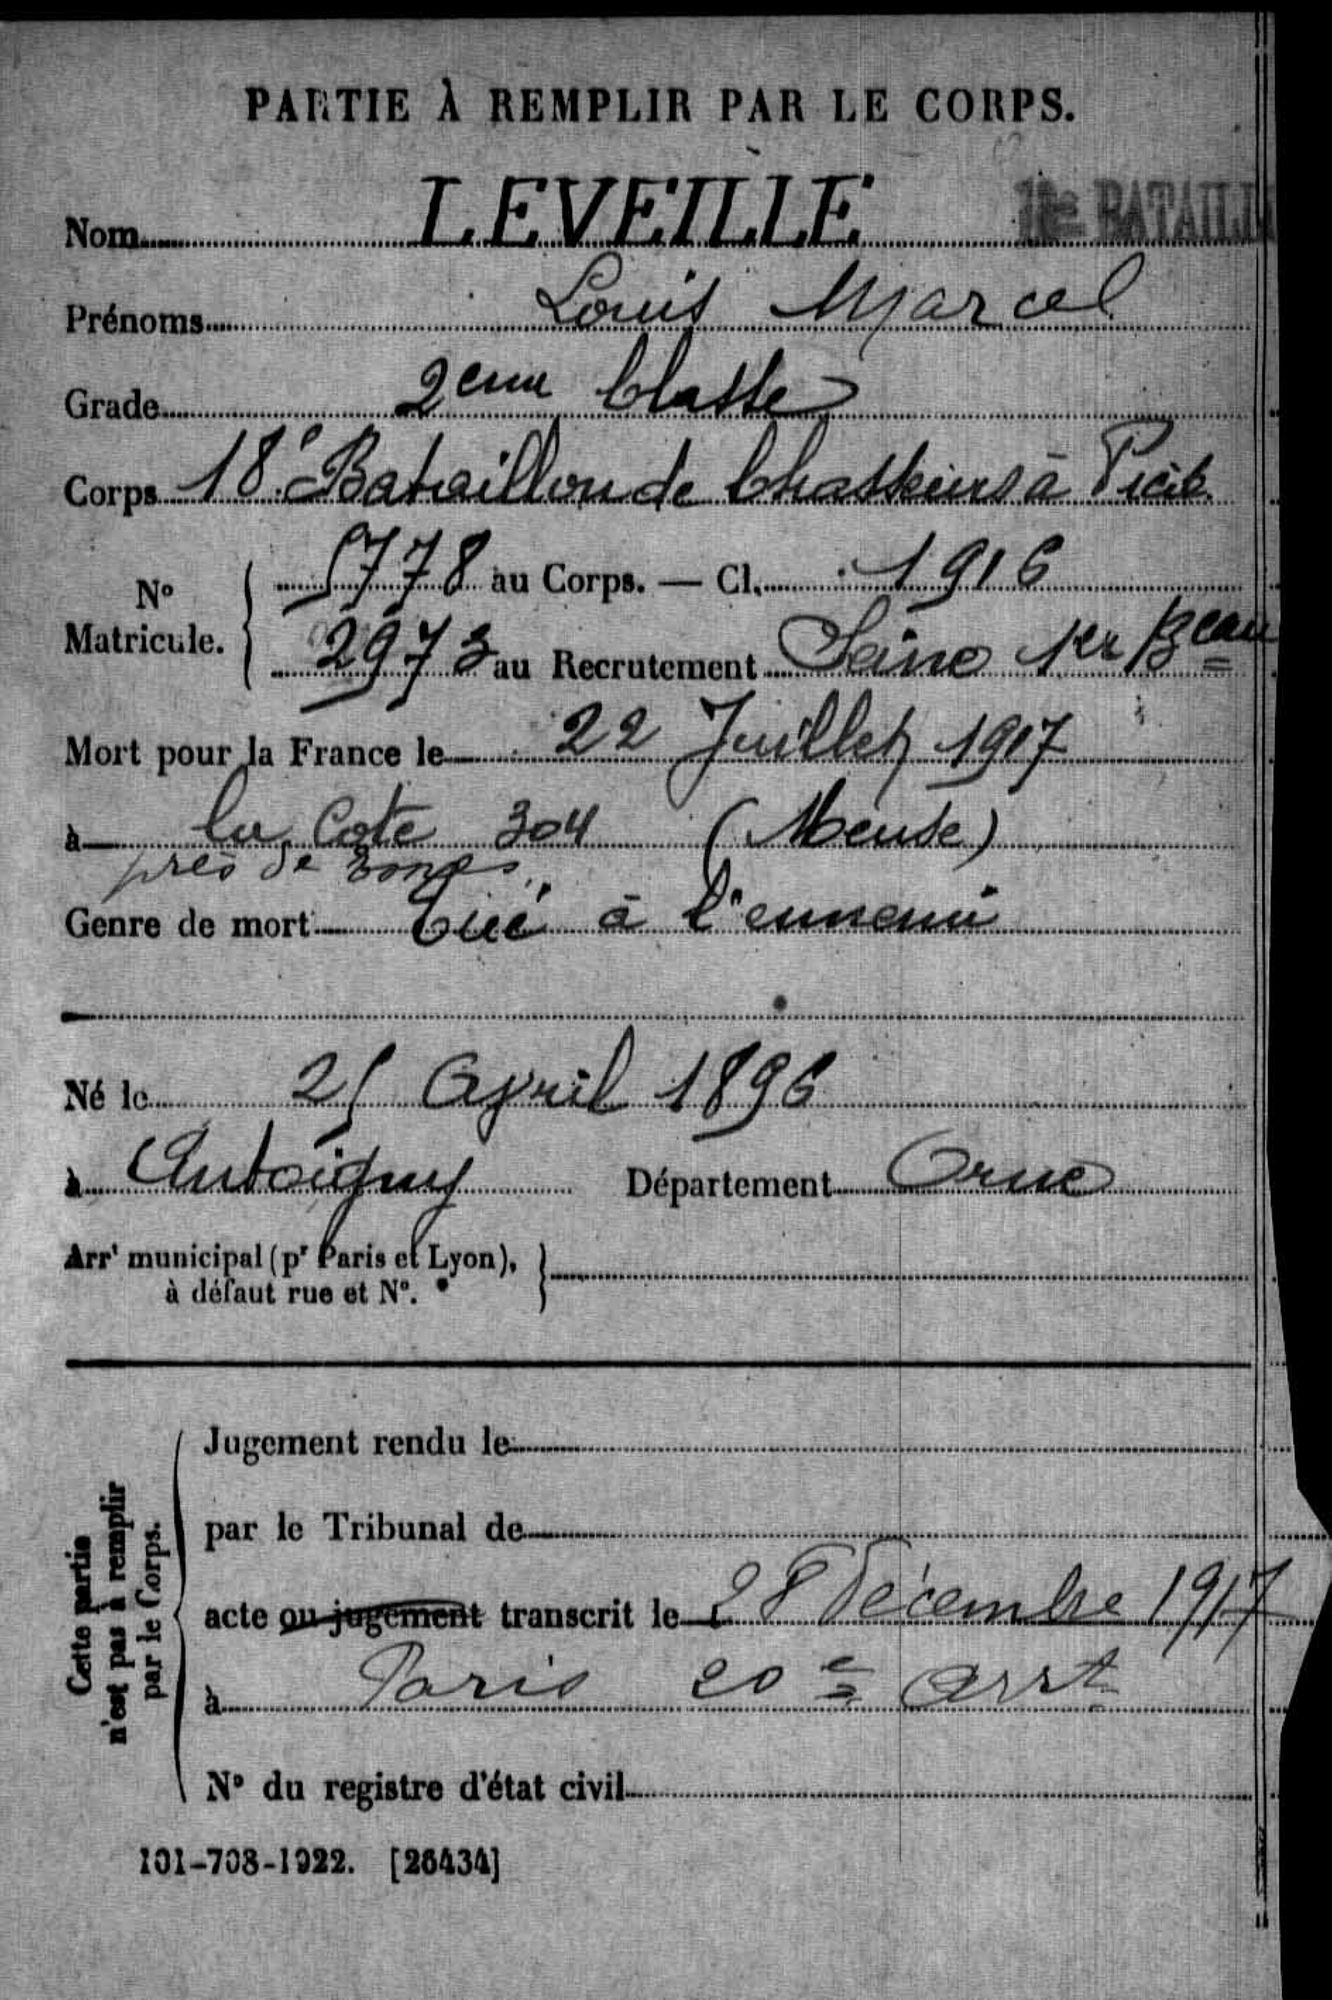 PARTIE À REMPLIR PAR LE CORPS.
Nom LEVEILLE
BATAILL
Prénoms Louis Marcel
Grade 2eme Classe
Corps 18e Bataillon de Chasseurs à Pied
N° Matricule. 5778 au Corps. — Cl. 1916
2973 au Recrutement Seine 1er Beau
Mort pour la France le 22 Juillet 1917
à la Cote 304 (Meuse)
près de
Genre de mort Tué à l'ennemi
Né le 25 Avril 1896
à Antoigny Département Orne
Arrt municipal (pr Paris et Lyon),
à défaut rue et N°.
Cette partie
n'est pas à remplir
par le Corps.
Jugement rendu le
par le Tribunal de
acte ou jugement transcrit le 28 Décembre 1917
à Paris 20e arrt
N° du registre d'état civil
101-708-1922. [26434]